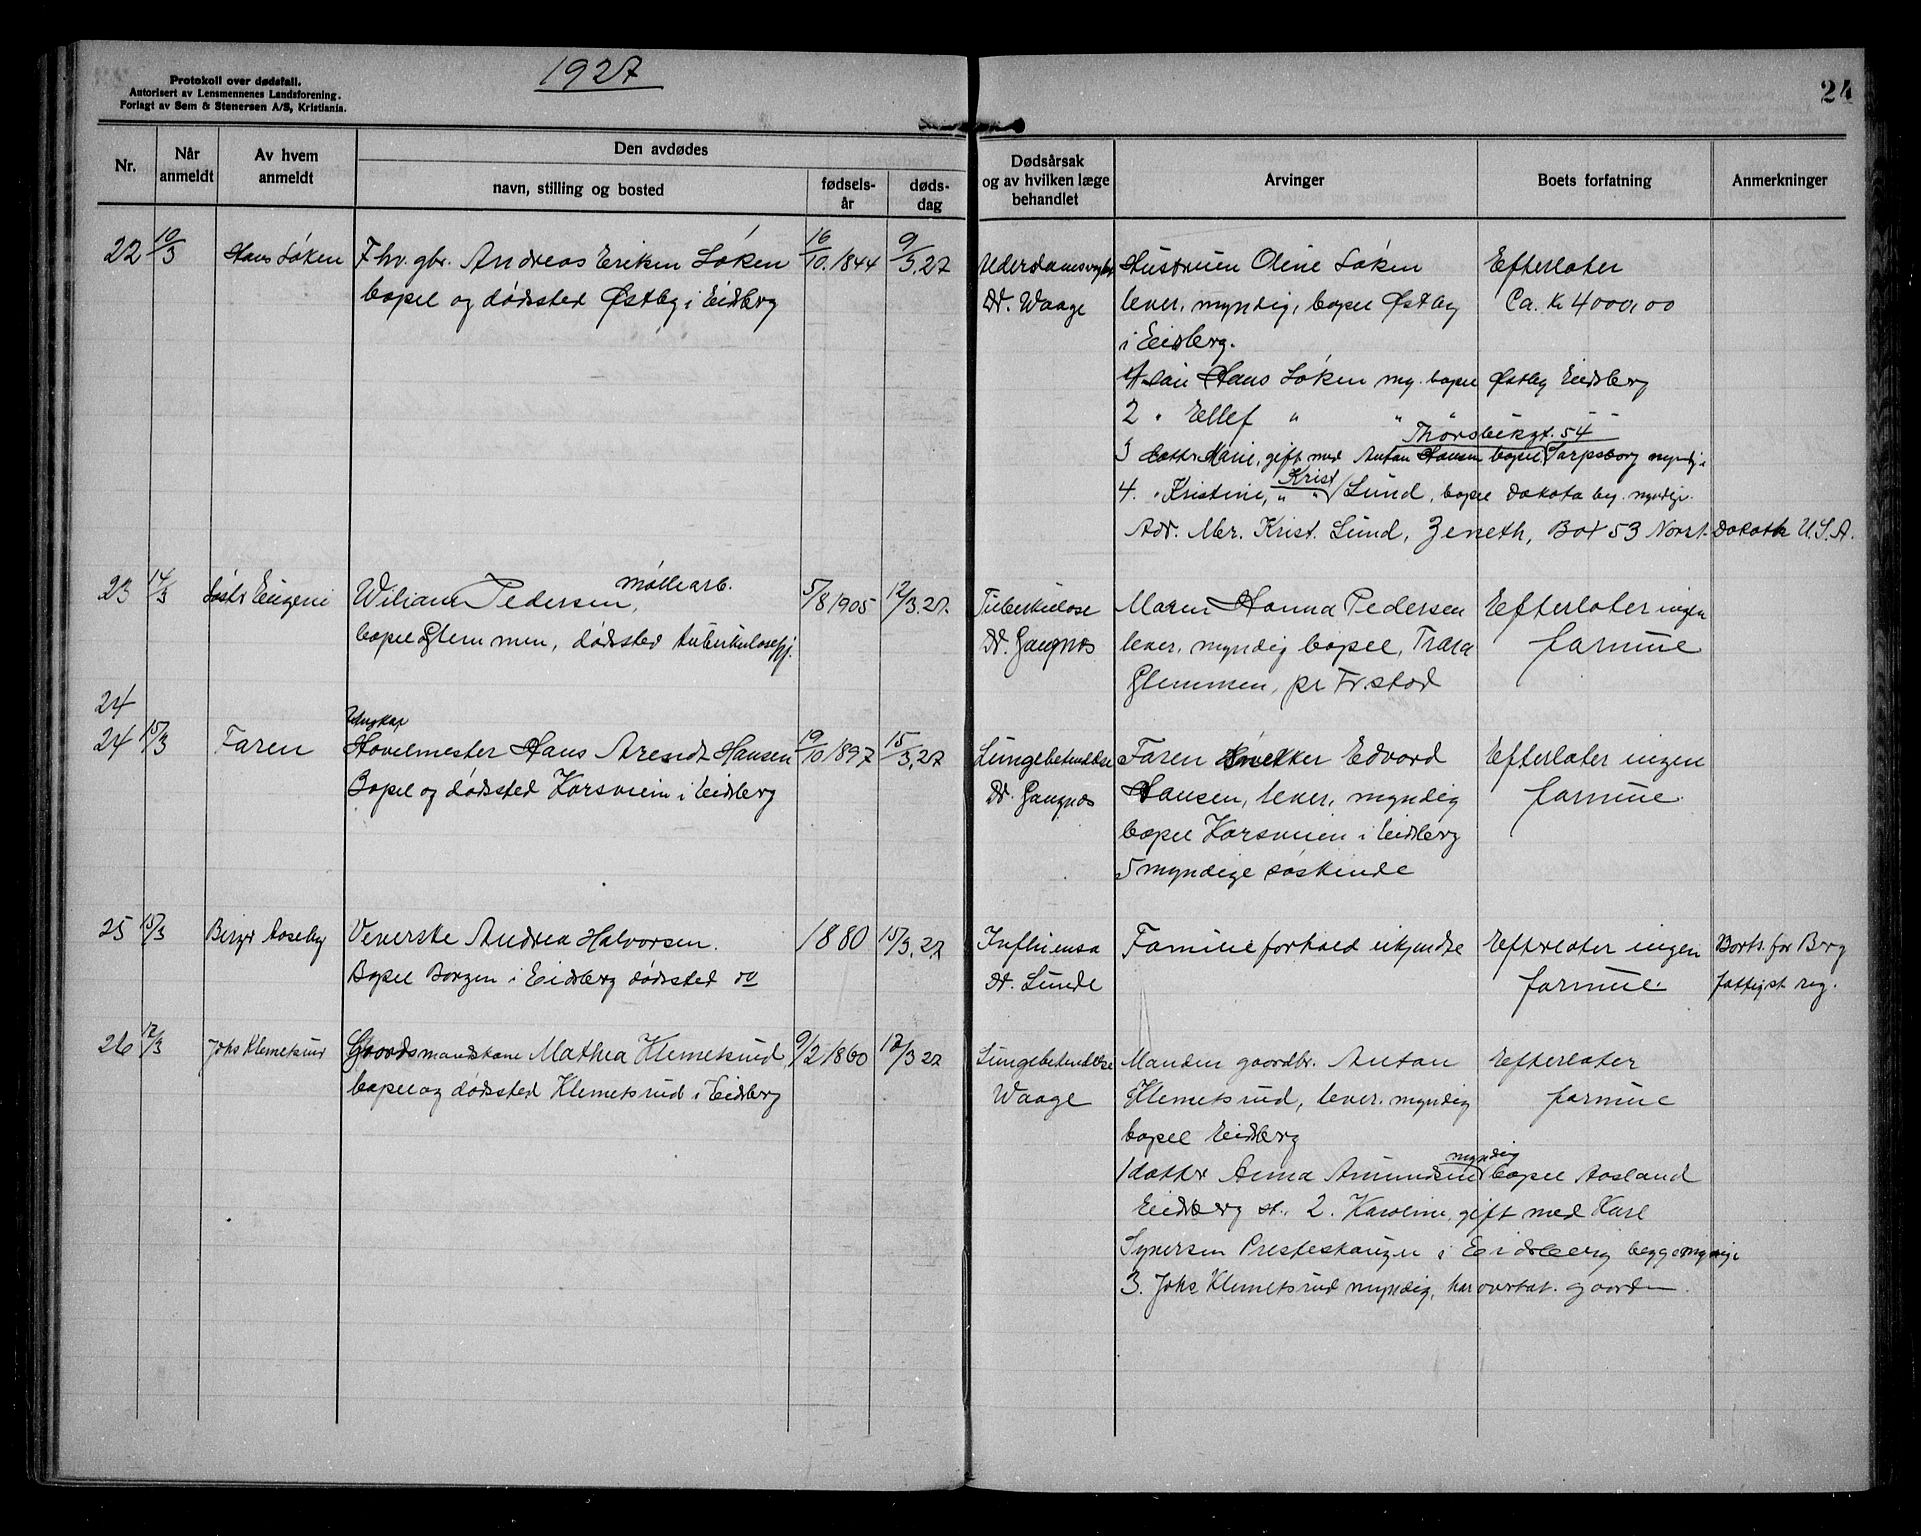 1927
24
Protokoll over dødsfall.
Autorisert av Lensmennenes Landsforening.
Forlagt av Sem & Stenersen A/S, Kristiania.
Nr.
Når anmeldt
Av hvem anmeldt
Den avdødes
navn, stilling og bosted
fødsels-år
døds-dag
Dødsårsak og av hvilken læge behandlet
Arvinger
Boets forfatning
Anmerkninger
22 10/3 Hans Løken Fhv. gbr. Andreas Eriksen Løken 16/10.1844 9/3.27
bopel og dødsted Østby i Eidsberg
Dr. Waage
Hustruen Oline Løken
lever, myndig, bopel Østby
i Eidsberg.
Efterlater
Ca. kr 4000,00
Hans Løken my. bopel Østby Eidsberg
2 " Ellef " "
Thorsbekgt. 54
3 datter Marie, gift med Anton Hansen bopel Sarpsborg myndig
Krist
4. " Kristine, " " Lund, bopel Dakota my. myndig.
Adr. Mr. Krist. Lund, Zeneth, Box 53 Nort. Dakota U.S.A.
23 14/3 Søster Eugeni Wiliam Pedersen, møllearb. 5/8 1905 12/3.27.
bopel Glemmen, dødsted tuberkulosehj.
Tuberkulose
Dr. Gangnæs
Maren Hanna Pedersen
lever, myndig bopel, Trara
Glemmen, pr Fr.stad
Efterlater ingen
formue
24
24 15/3 Faren Ungkar
Hovelmester Hans Arendt Hansen 19/10 1897 15/3.27
Bopel og dødsted Korsveien i Eidsberg
Lungebetendelse
Dr. Gangnæs
Faren Snekker Edvard
Hansen, lever, myndig
bopel Korsveien i Eidsberg
5 myndige søskende
Efterlater ingen
formue
25 15/3 Birger Aaseby Veverske Andrea Halvorsen. 1880 15/3.27
Bopel Borgen i Eidsberg dødsted do
Influensa
Dr. Lunde
Familieforhold ukjendte
Efterlater ingen
formue.
Borts. for Berg
fattigst reg.
26 17/3 Johs Klemetsrud Gaardsmandskone Mathea Klemetsrud 9/2 1860 12/3 27
bopel og dødsted Klemetsrud i Eidsberg
Lungebetendelse
Waage
Manden gaardbr. Anton
Klemetsrud, lever. myndig
bopel Eidsberg
Efterlater
formue
myndig
1 datter Anna Amundsen bopel Aasland
Eidsberg st., 2. Karoline, gift med Karl
Synersen Presteskaugen i Eidsberg begge myndige
3. Johs Klemetsrud myndig, har overtat. gaarden.